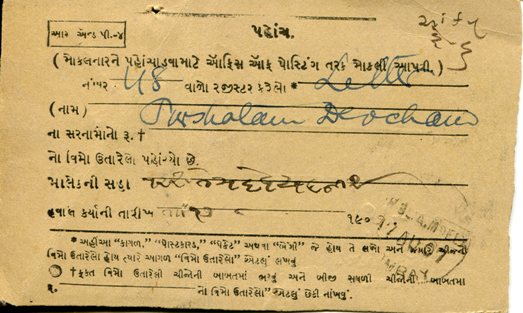 આર એન્ડ પી.-૪
પહોંચ.
( મોકલનારને પહોંચાડવામાટે ઑફિસ ઑફ પોસ્ટિંગ તરફ મોકલી આપવી. )
નંબર 48 વાળો રજીસ્ટર કરેલો * Letter
(નામ) Purshotam Deochand
ના સરનામાનો રૂ. †
નો વિમો ઉતારેલો પહોંચ્યો છે.
માલેકની સહી
હવાલે કર્યાની તારીખ ૧૯૦
* અહીંઆ "કાગળ," "પોસ્ટકાર્ડ," "પેકેટ" અથવા "થેલી" જે હોય તે લખો અને જ્યારે ચીજનો
વિમો ઉતારેલો હોય ત્યારે આગળ "વિમો ઉતારેલી" એટલું લખવું
† ફક્ત વિમો ઉતારેલી ચીજોની બાબતમાં ભરવું અને બીજી સઘળી ચીજોની બાબતમાં
રૂ. નો વિમો ઉતારેલો" એટલું છેકી નાંખવું.